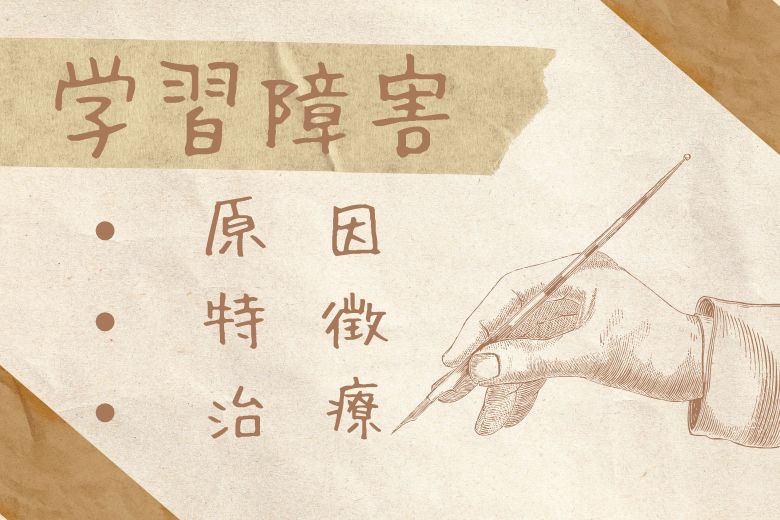 学習障害
• 原因
• 特徴
• 治療